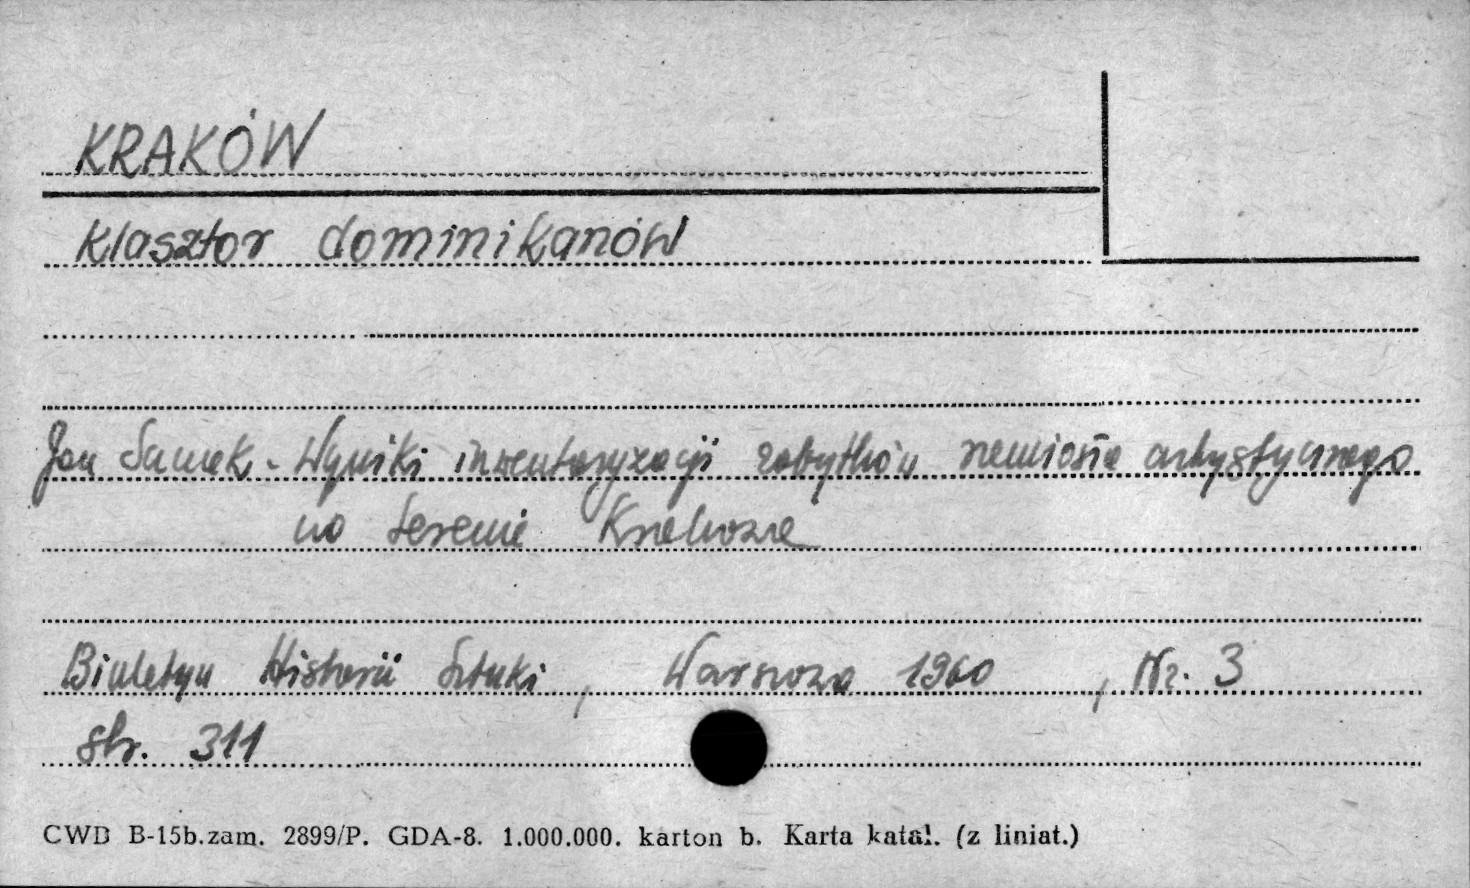 KRAKÓW
Klasztor dominikanów
Jan Samek - Wyniki inwentaryzacji zabytków rzemiosła artystycznego
na terenie Krakowa
Biuletyn Historii Sztuki, Warszawa 1960, Nr. 3
str. 311
CWD B-15b.zam. 2899/P. GDA-8. 1.000.000. karton b. Karta katal. (z liniat.)